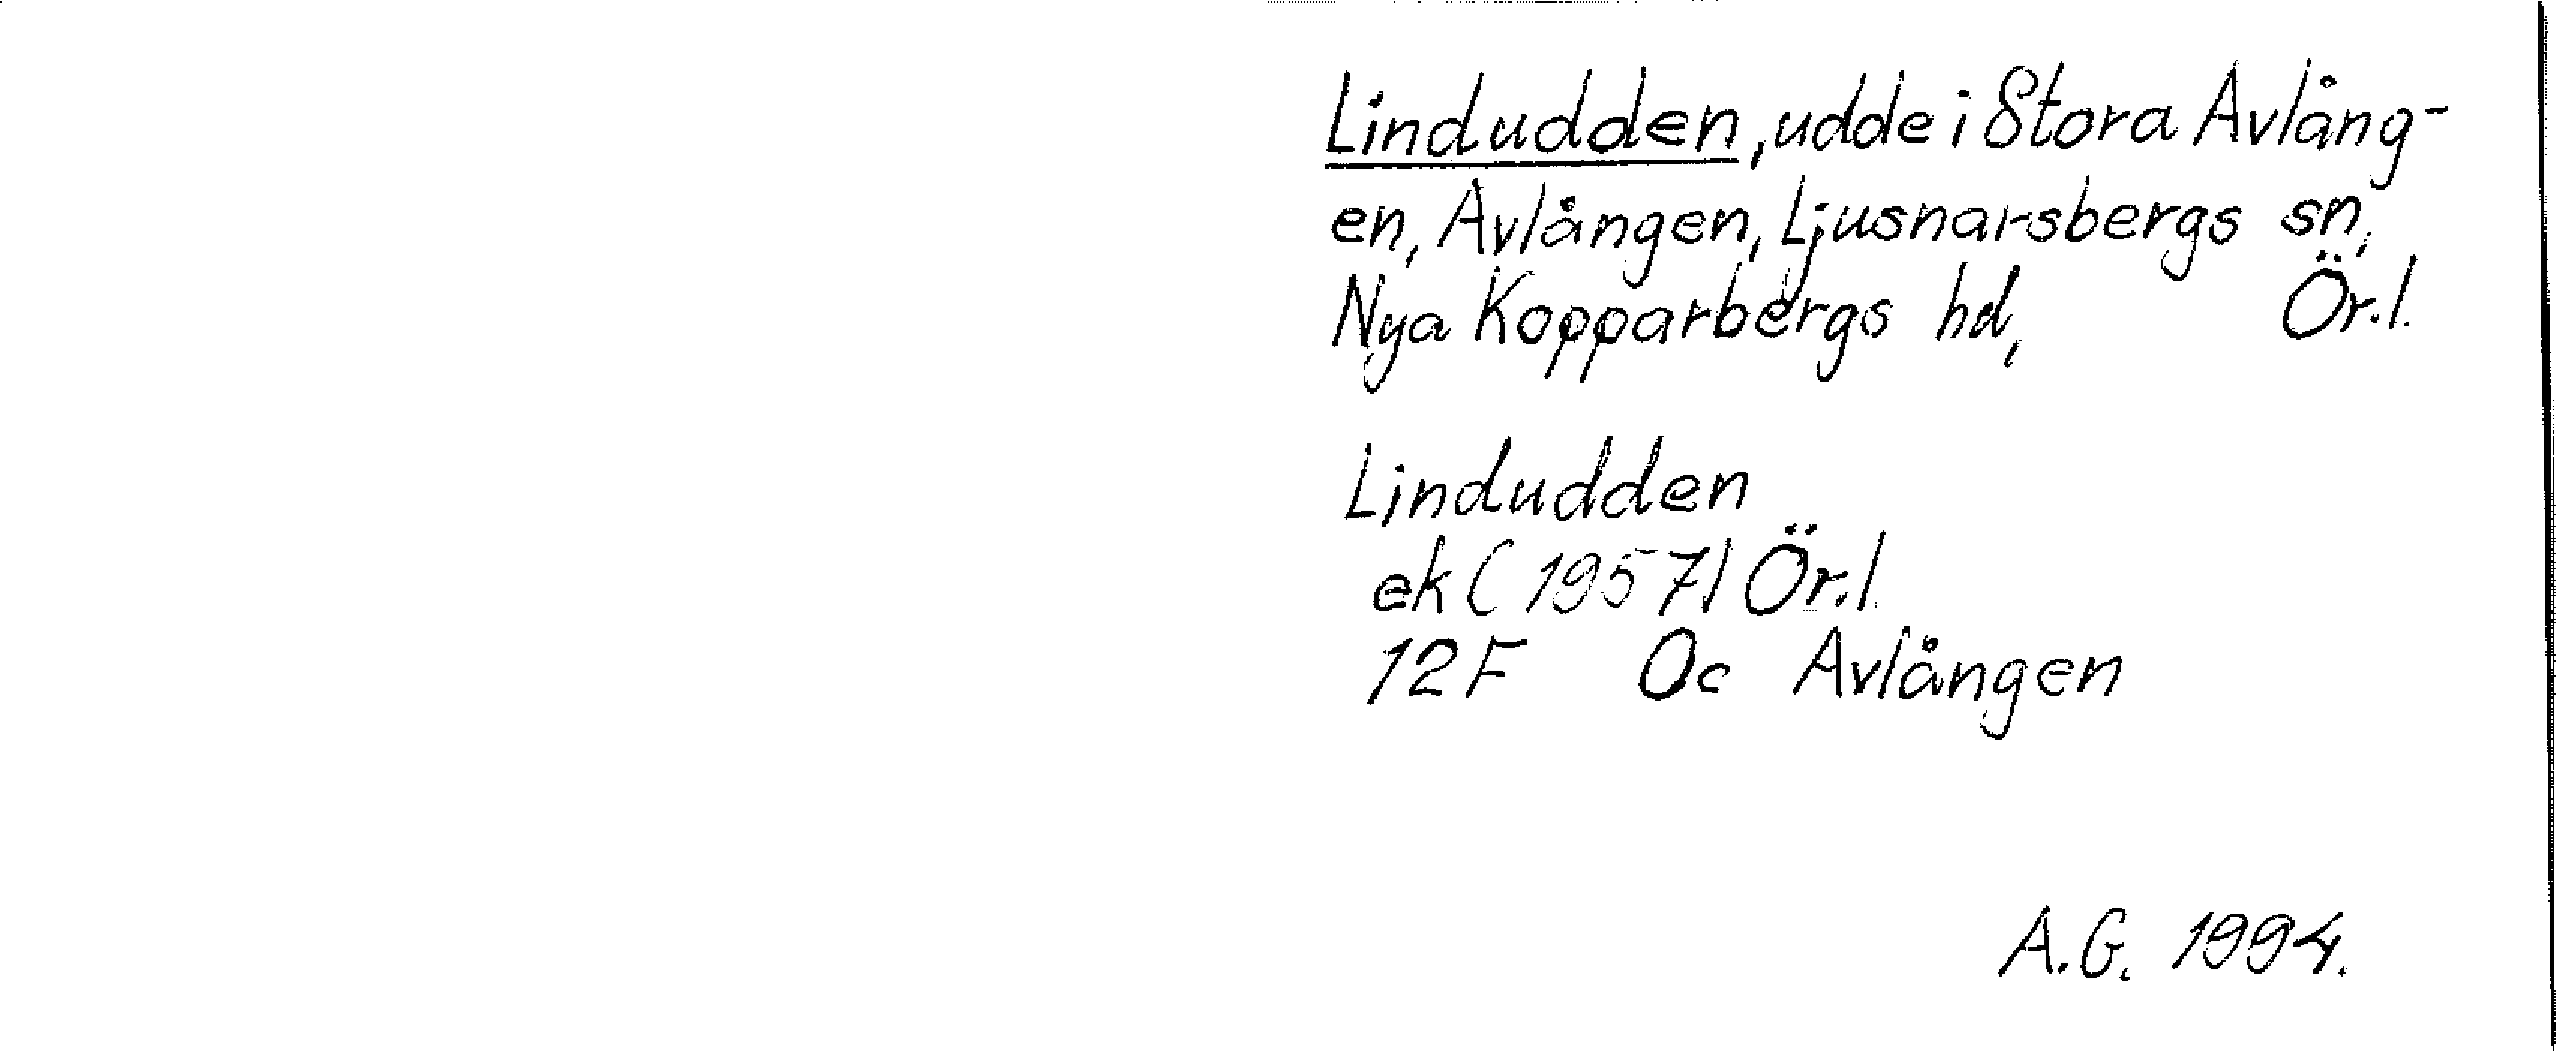 Lindudden, udde i Stora Avlång-
en, Avlången, Ljusnarsbergs sn,
Nya Kopparbergs hd, Ör.l.
Lindudden
ek (1957) Ör.l.
12F 0c Avlången
A.G. 1994.